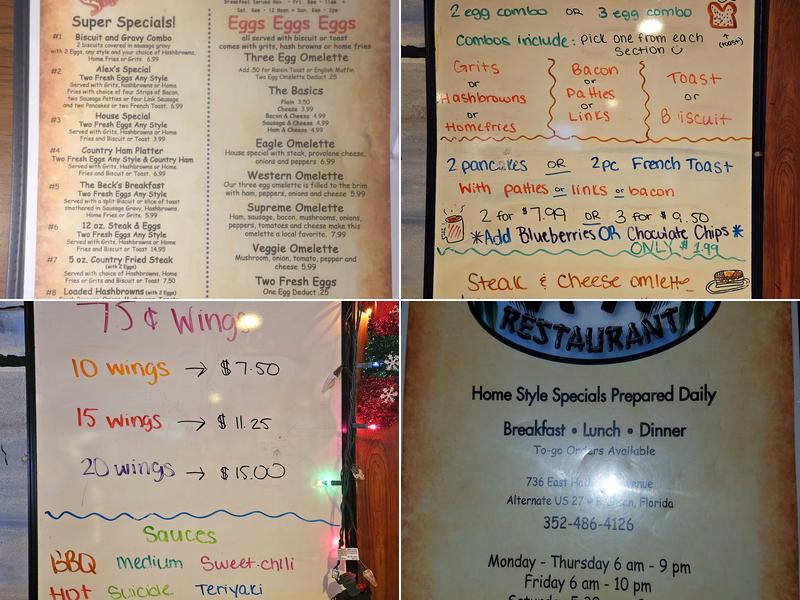 Breakfast Served Mon. - Fri. 6am - 11am
Sat. 6am - 12 Noon • Sun. 6am - 2pm
Super Specials!
#1 Biscuit and Gravy Combo
2 biscuits covered in sausage gravy
with 2 Eggs, any style and your choice of Hashbrowns,
Home Fries or Grits 6.99
#2 Alex's Special
Two Fresh Eggs Any Style
Served with Grits, hashbrowns or Home
Fries with choice of four Strips of Bacon,
two Sausage Patties or four Link Sausage
and two Pancakes or two French Toast. 6.99
#3 House Special
Two Fresh Eggs Any Style
Served with Grits, Hashbrowns or Home
Fries and Biscuit or Toast 3.99
#4 Country Ham Platter
Two Fresh Eggs Any Style & Country Ham
Served with Grits, Hashbrowns or Home
Fries and Biscuit or Toast 6.99
#5 The Beck's Breakfast
Two Fresh Eggs Any Style
Served with a split Biscuit or slice of toast
smothered in Sausage Gravy, Hashbrowns,
Home Fries or Grits 5.99
#6 12 oz. Steak & Eggs
Two Fresh Eggs Any Style
Served with Grits, Hashbrowns or Home
Fries and Biscuit or Toast 14.95
#7 5 oz. Country Fried Steak
(with 2 Eggs)
Served with choice of Hashbrowns, Home
Fries or Grits and Biscuit or Toast 7.50
#8 Loaded Hashbrowns (with 2 Eggs)
Eggs Eggs Eggs
all served with biscuit or toast
comes with grits, hash browns or home fries
Three Egg Omelette
Add .50 for Raisin Toast or English Muffin
Two Egg Omelette Deduct .25
The Basics
Plain 3.50
Cheese 3.99
Bacon & Cheese 4.99
Sausage & Cheese 4.99
Ham & Cheese 4.99
Eagle Omelette
House special with steak, provolone cheese,
onions and peppers 6.99
Western Omelette
Our three egg omelette is filled to the brim
with ham, peppers, onions and cheese 5.99
Supreme Omelette
Ham, sausage, bacon, mushrooms, onions,
peppers, tomatoes and cheese make this
omelette a local favorite. 7.99
Veggie Omelette
Mushroom, onion, tomato, pepper and
cheese. 5.99
Two Fresh Eggs
One Egg Deduct .25
2 egg combo OR 3 egg combo
Combos include: pick one from each
section
(toast)
Grits
or
Hashbrowns
or
Homefries
Bacon
or
Patties
or
Links
Toast
or
Biscuit
2 pancakes OR 2pc French Toast
With patties or links or bacon
2 for $7.99 OR 3 for $9.50
*Add Blueberries OR Chocolate Chips*
ONLY $1.99
Steak & Cheese omlette
75¢ Wings
10 wings → $7.50
15 wings → $11.25
20 wings → $15.00
Sauces
BBQ Medium Sweet-chili
Hot Suicide Teriyaki
RESTAURANT
Home Style Specials Prepared Daily
Breakfast • Lunch • Dinner
To-go Orders Available
736 East
Alternate US 27 • Florida
352-486-4126
Monday - Thursday 6 am - 9 pm
Friday 6 am - 10 pm